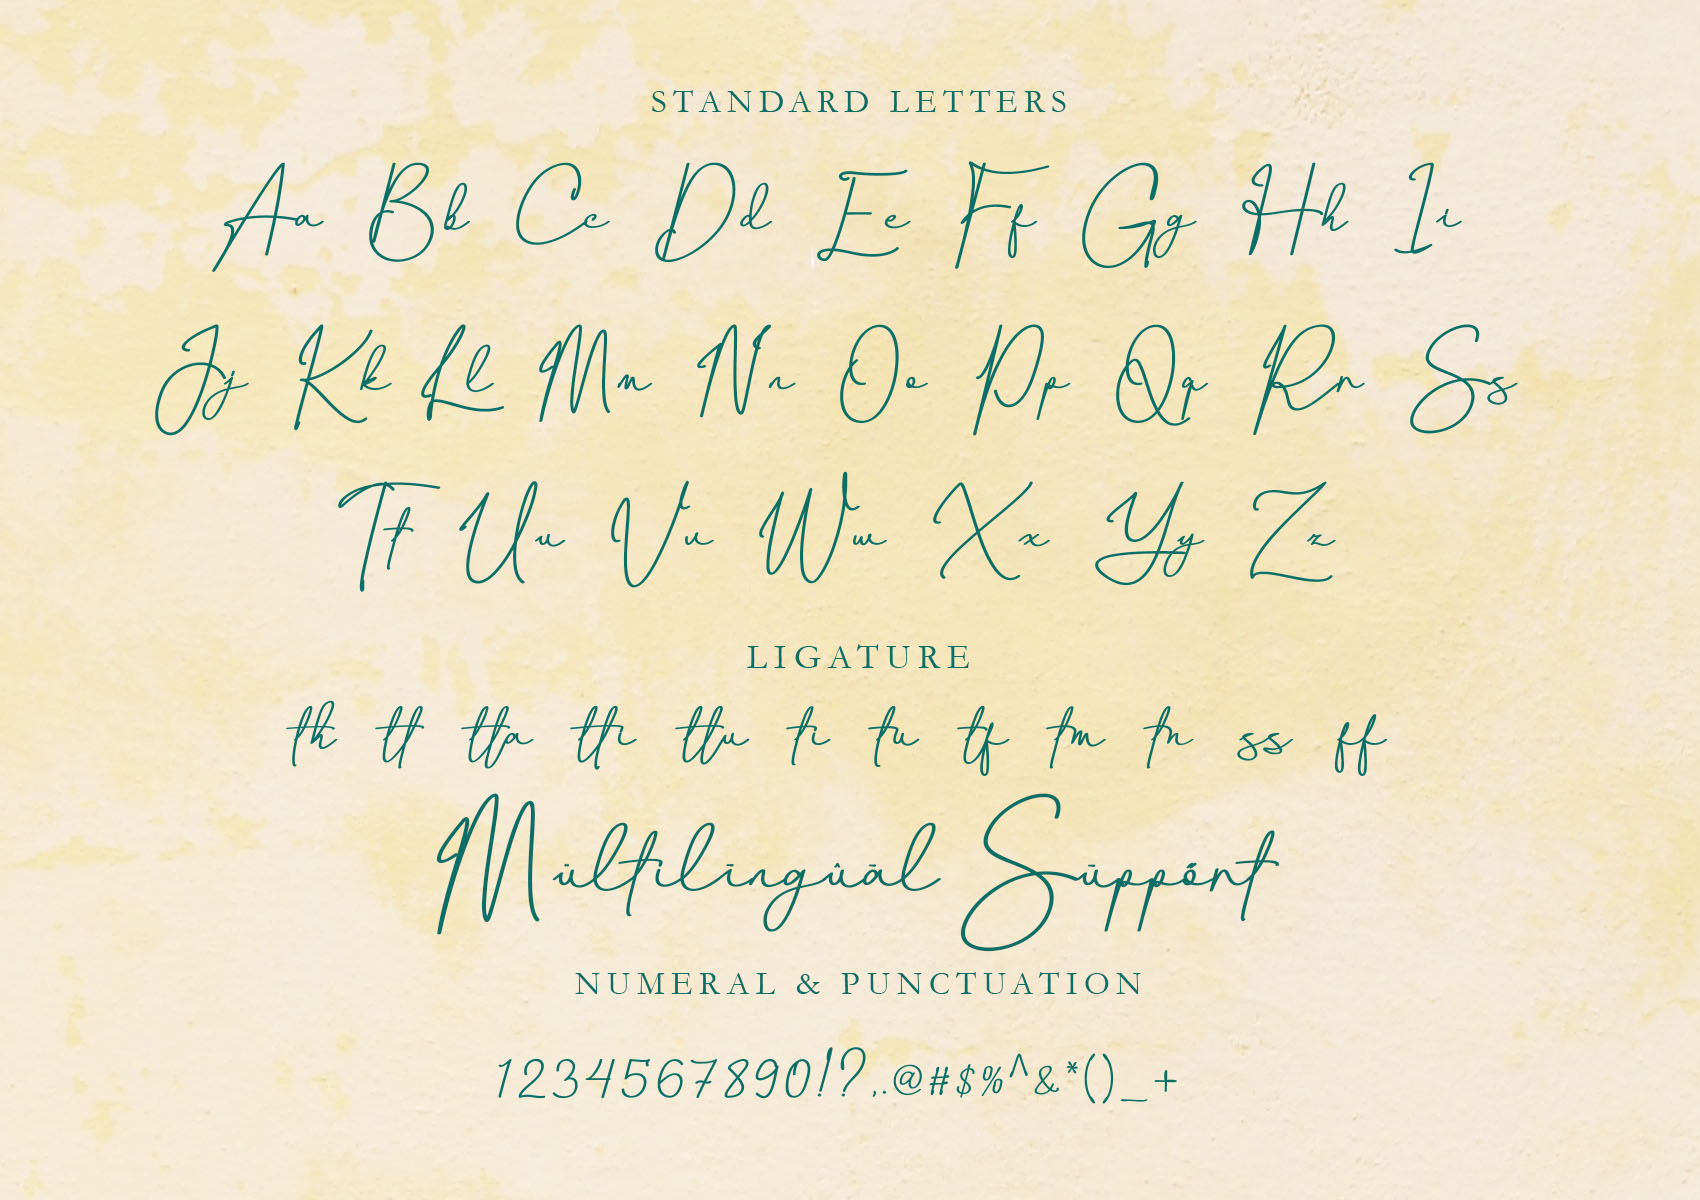 STANDARD LETTERS
Aa Bb Cc Dd Ee Ff Gg Hh Ii
Jj Kk Ll Mm Nn Oo Pp Qq Rr Ss
Tt Uu Vv Ww Xx Yy Zz
LIGATURE
th tt tta tti ttu ti tu tf tm tn ss ff
Mültilīngûāl Sūppőrt
NUMERAL & PUNCTUATION
1234567890!?,.@#$%^&*()_+